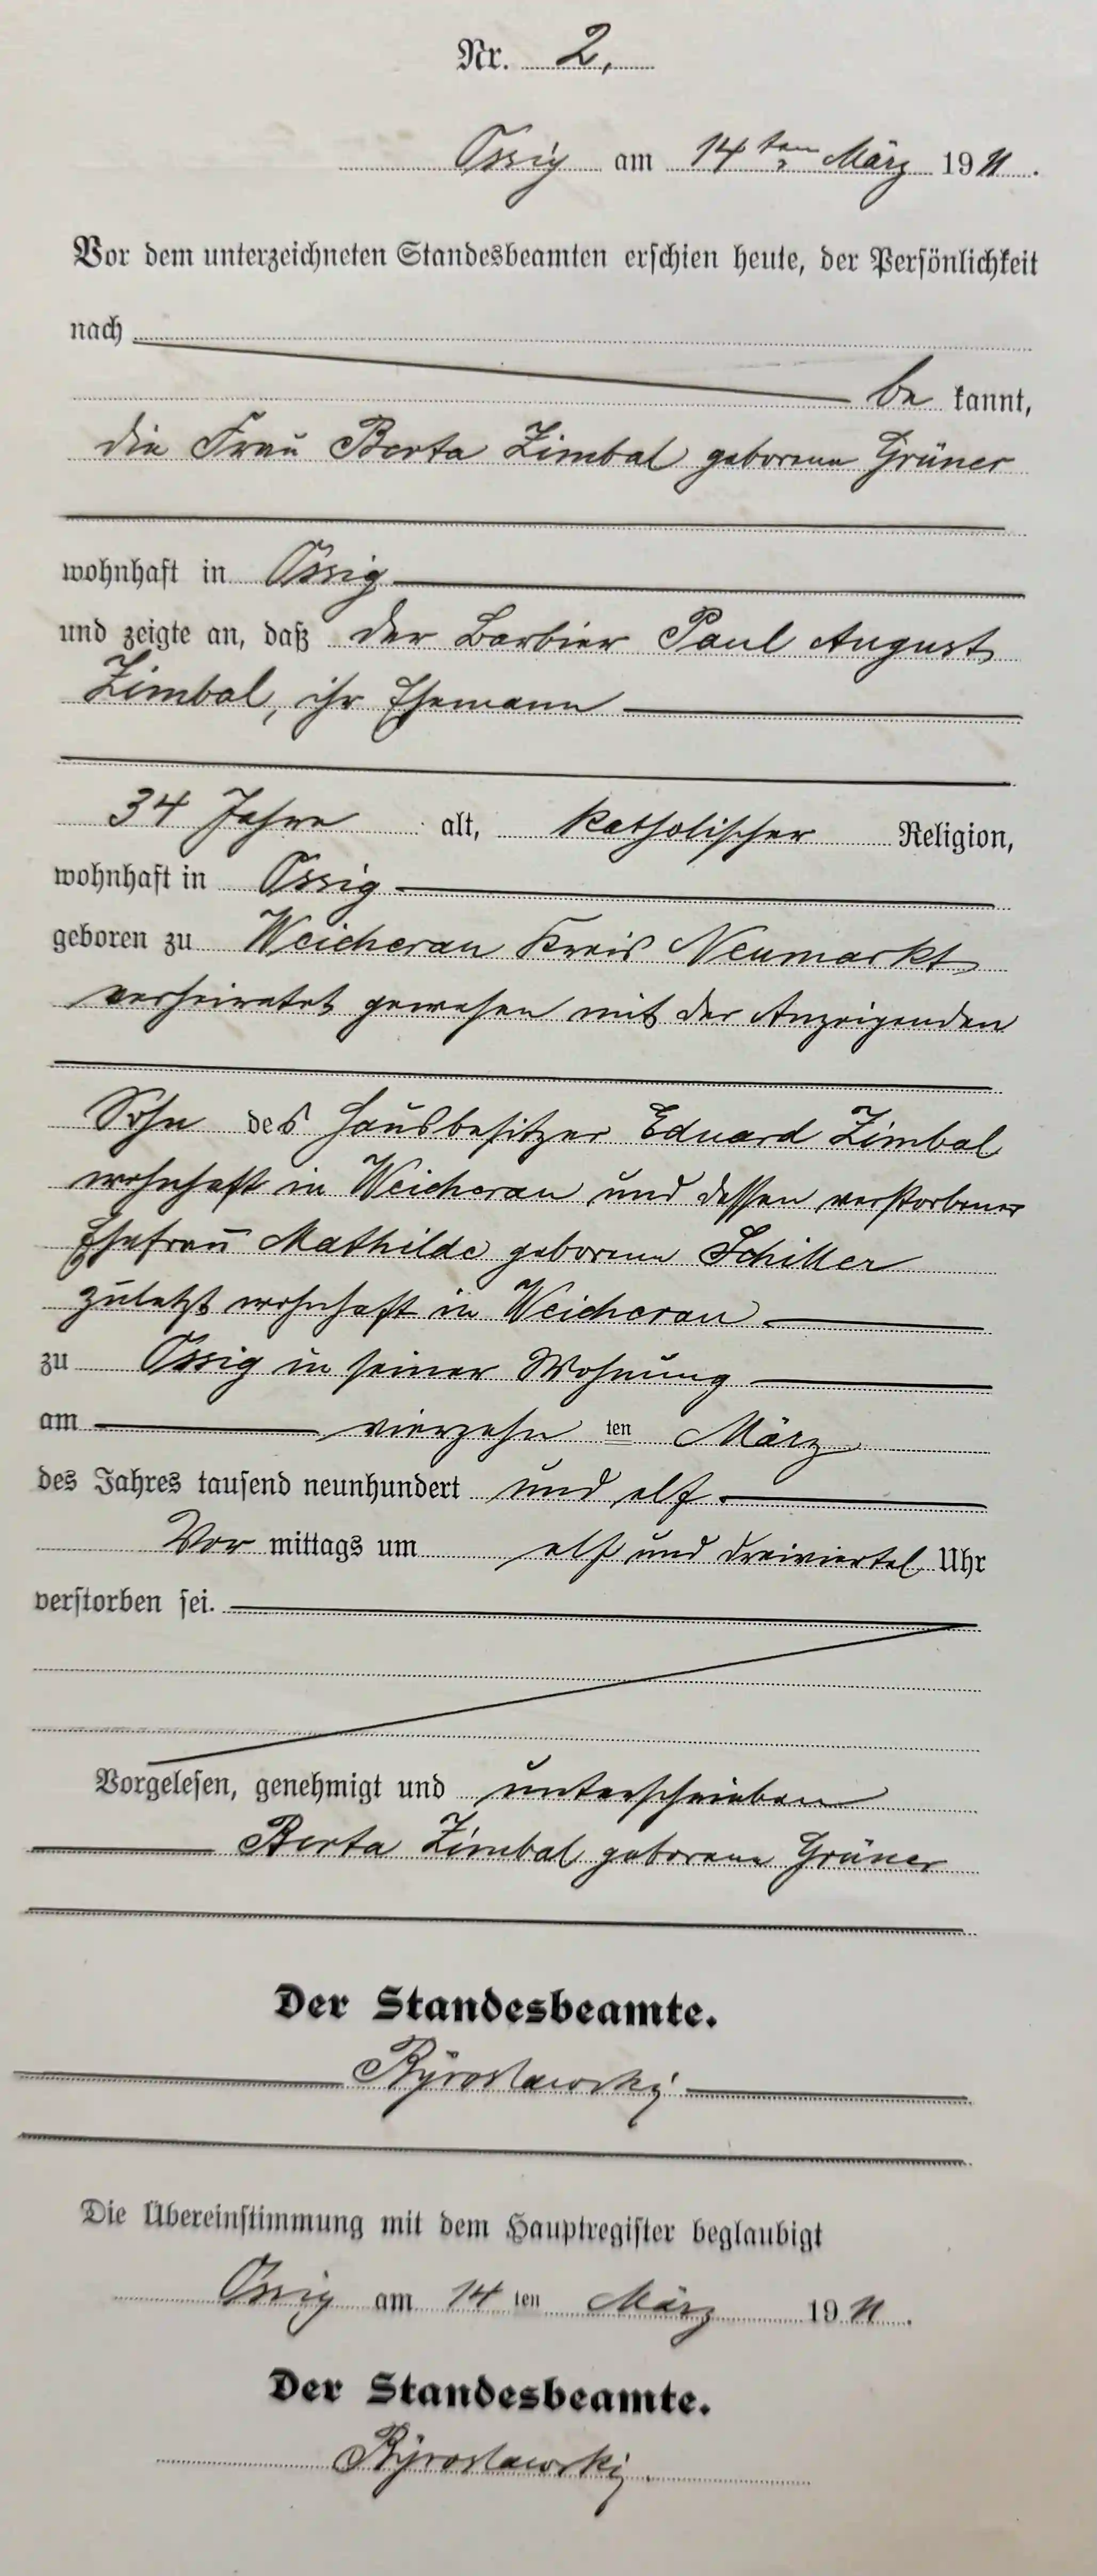 Nr. 2,
Ossig am 14ten März 1911.
Vor dem unterzeichneten Standesbeamten erschien heute, der Persönlichkeit
nach
be kannt,
die Frau Berta Zimbal geborene Grüner
wohnhaft in Ossig
und zeigte an, daß der Barbier Paul August
Zimbal, ihr Ehemann
34 Jahre alt, katholischer Religion,
wohnhaft in Ossig
geboren zu Weicherau Kreis Neumarkt
verheiratet gewesen mit der Anzeigenden
Sohn des Hausbesitzer Eduard Zimbal
wohnhaft in Weicherau und dessen verstorbener
Ehefrau Mathilde geborene Schiller
zuletzt wohnhaft in Weicherau
zu Ossig in seiner Wohnung
am vierzehn ten März
des Jahres tausend neunhundert und elf
Vor mittags um elf und dreiviertel Uhr
verstorben sei.
Vorgelesen, genehmigt und unterschrieben
Berta Zimbal geborene Grüner
Der Standesbeamte.
Die Übereinstimmung mit dem Hauptregister beglaubigt
Ossig am 14 ten März 1911.
Der Standesbeamte.